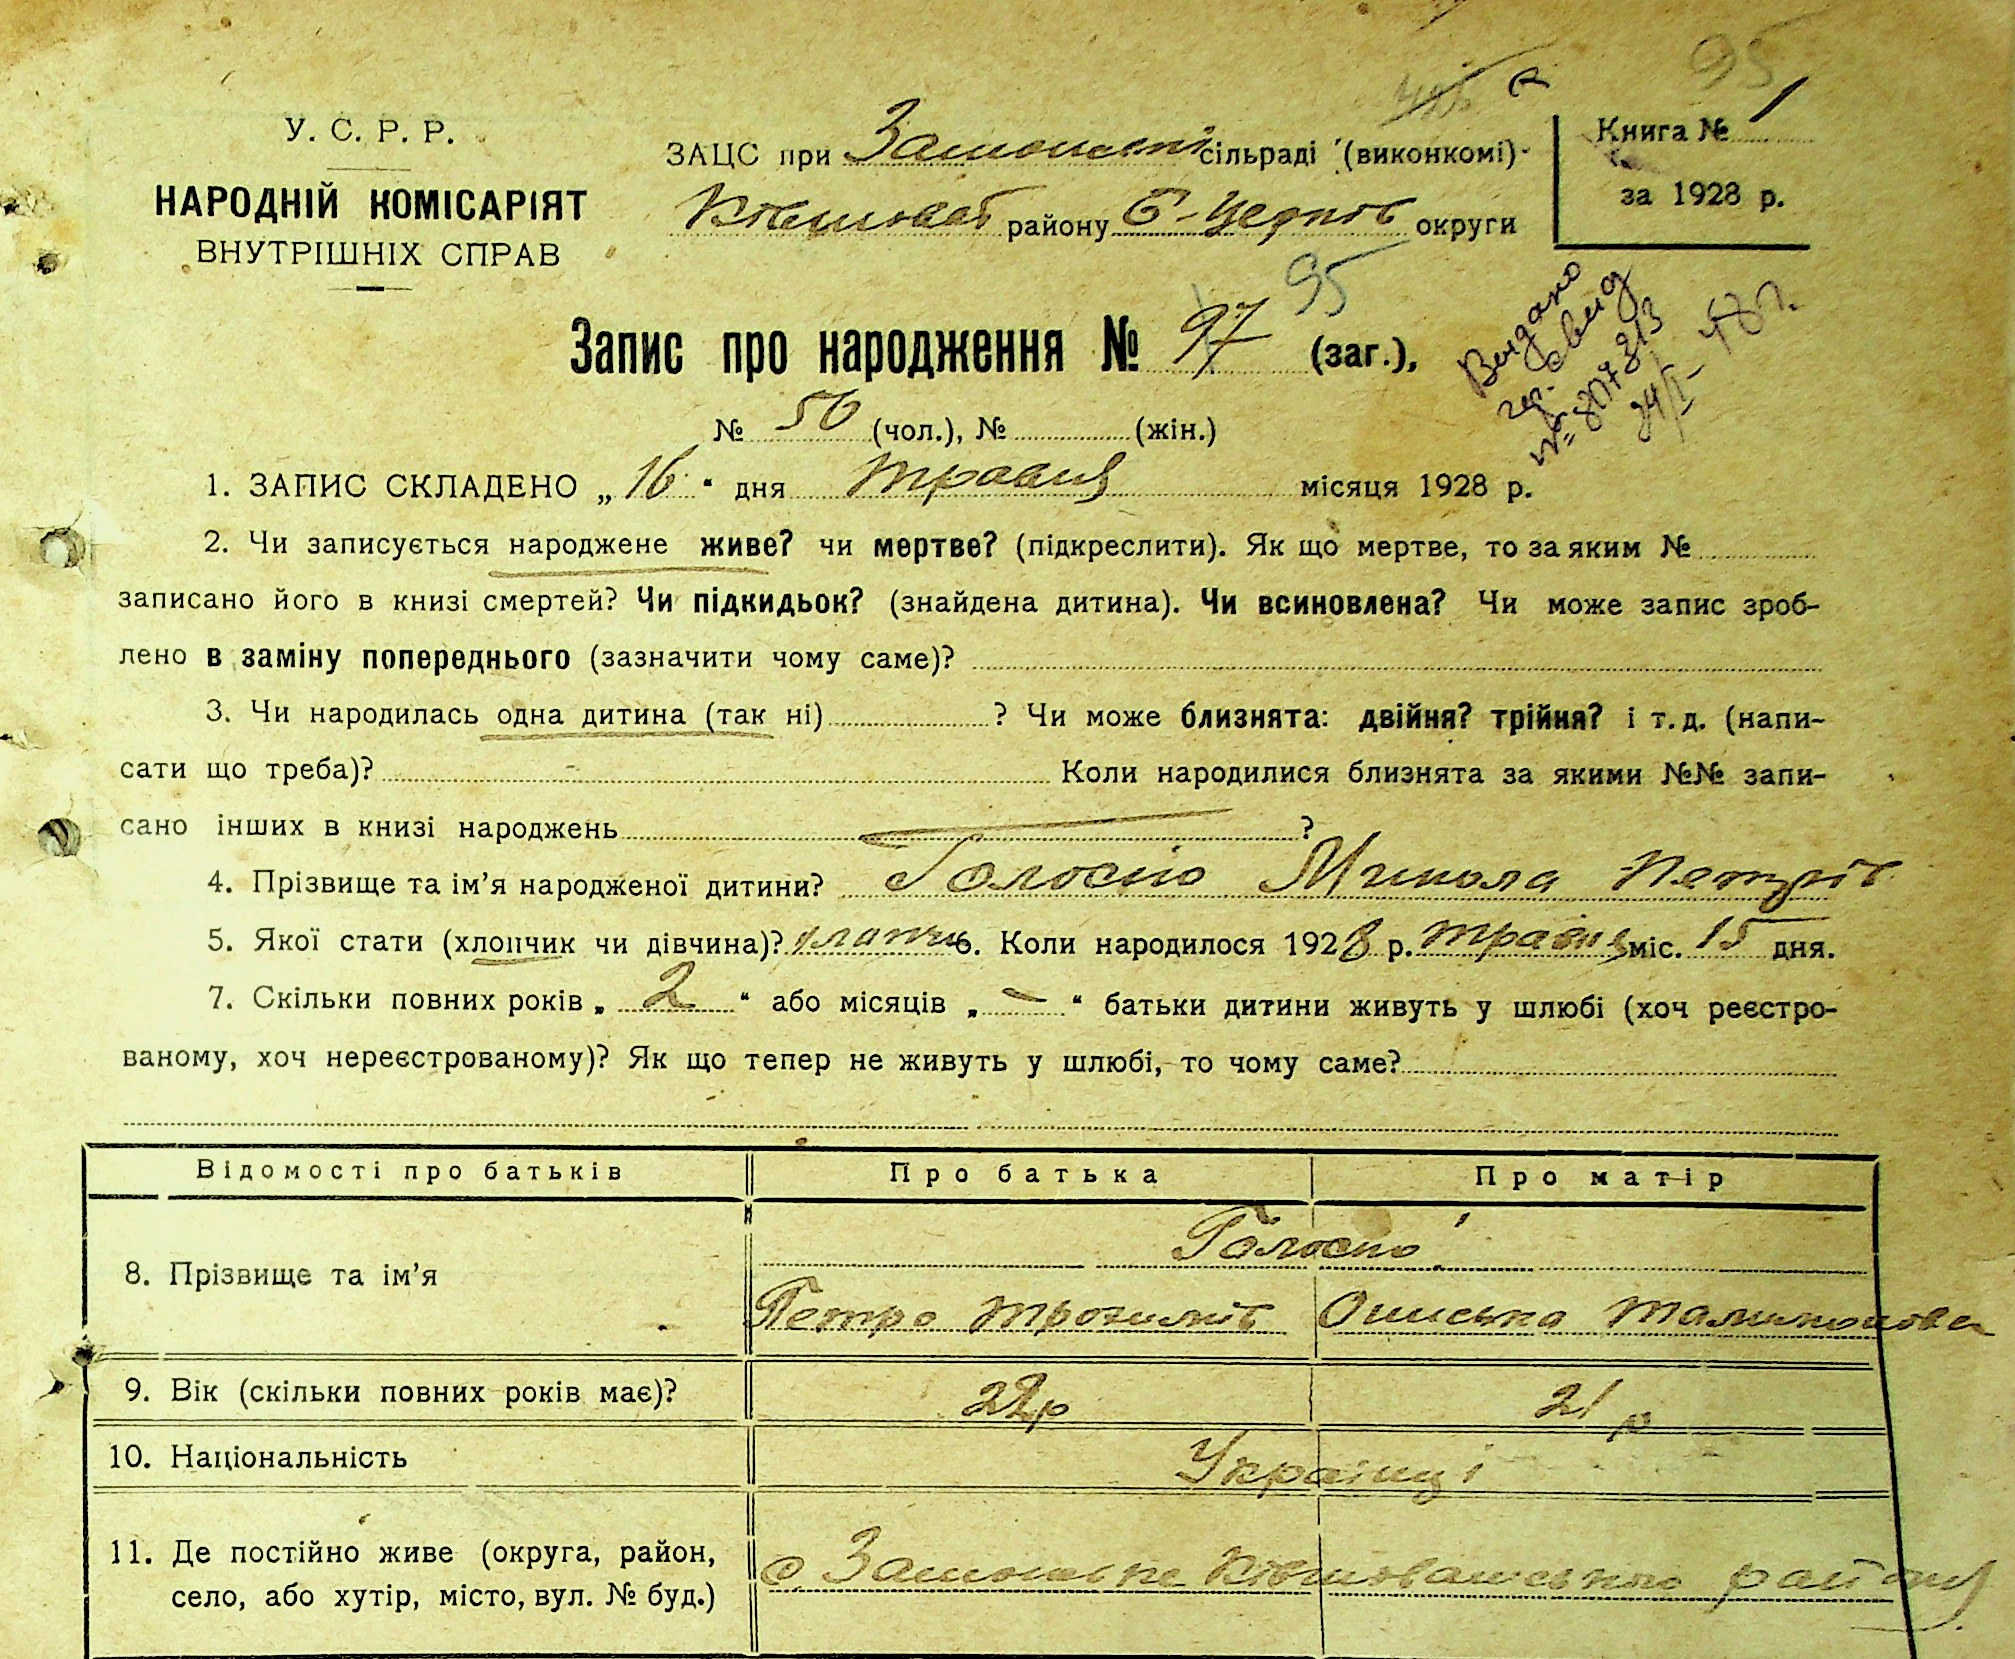 95
У. С. Р. Р.
НАРОДНІЙ КОМІСАРІЯТ
ВНУТРІШНІХ СПРАВ
ЗАЦС при сільраді (виконкомі)
району Б-Церків округи
Книга № 1
за 1928 р.
95
Запис про народження № 97 (заг.),
Видано
свид
№ 56 (чол.), № (жін.)
1. ЗАПИС СКЛАДЕНО „ 16 “ дня травня місяця 1928 р.
2. Чи записується народжене живе? чи мертве? (підкреслити). Як що мертве, то за яким №
записано його в книзі смертей? Чи підкидьок? (знайдена дитина). Чи всиновлена? Чи може запис зроб-
лено в заміну попереднього (зазначити чому саме)?
3. Чи народилась одна дитина (так ні) ? Чи може близнята: двійня? трійня? і т. д. (напи-
сати що треба)? Коли народилися близнята за якими №№ запи-
сано інших в книзі народжень ?
4. Прізвище та ім’я народженої дитини? Голосно Микола Петрів
5. Якої стати (хлопчик чи дівчина)? хлопчик 6. Коли народилося 1928 р. травня міс. 15 дня.
7. Скільки повних років „ 2 “ або місяців „ – “ батьки дитини живуть у шлюбі (хоч реєстро-
ваному, хоч нереєстрованому)? Як що тепер не живуть у шлюбі, то чому саме?
Відомості про батьків Про батька Про матір
Голосно
8. Прізвище та ім’я
Петро Трохимів Ониська
9. Вік (скільки повних років має)? 22р 21 р
10. Національність Українці
11. Де постійно живе (округа, район,
село, або хутір, місто, вул. № буд.)
с. району